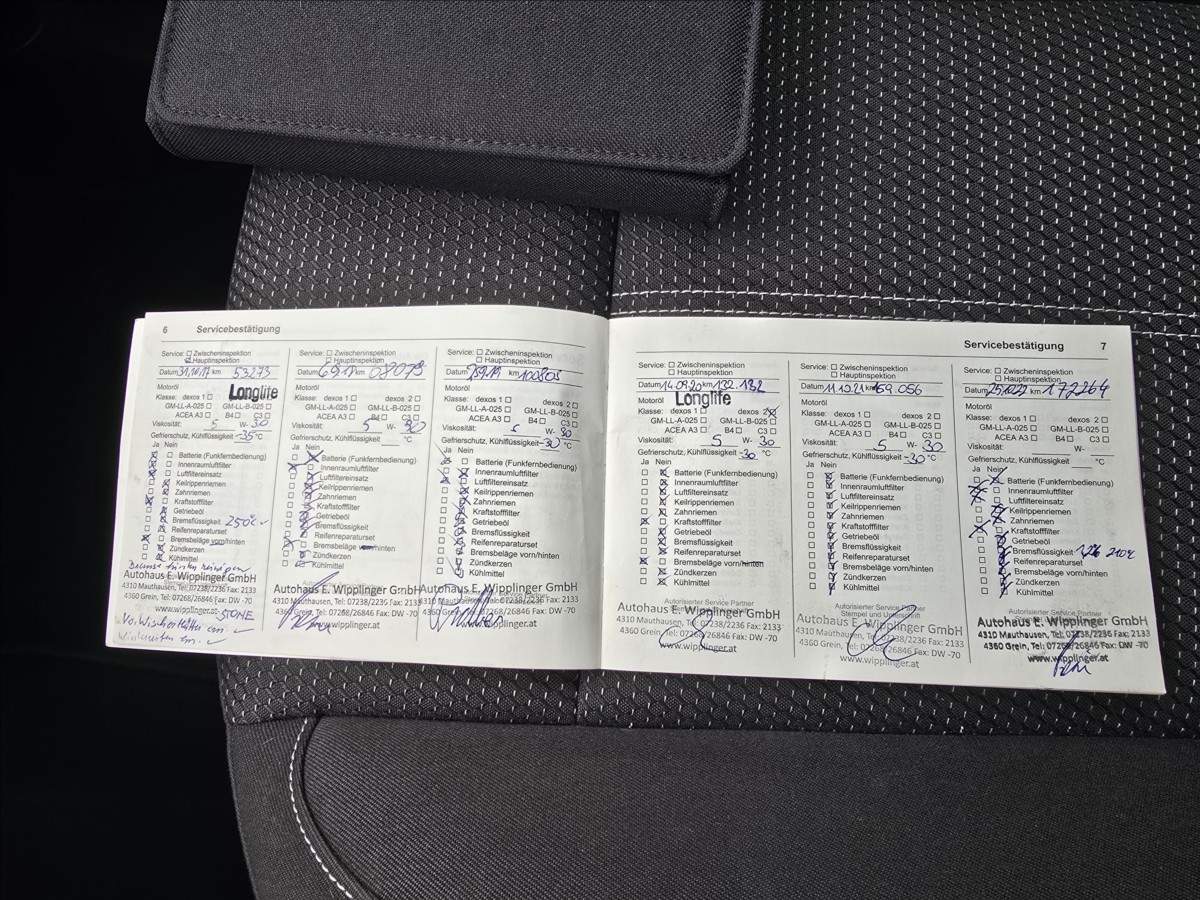 6 Servicebestätigung
Service: Zwischeninspektion
Hauptinspektion
Datum 31.10.17 km 53273
Motoröl Longlife
Klasse: dexos 1
GM-LL-A-025 GM-LL-B-025
ACEA A3 B4 C3
Viskosität: 5 W- 30
Gefrierschutz, Kühlflüssigkeit -35 °C
Ja Nein
Batterie (Funkfernbedienung)
Innenraumluftfilter
Luftfiltereinsatz
Keilrippenriemen
Zahnriemen
Kraftstofffilter
Getriebeöl
Bremsflüssigkeit
Reifenreparaturset
Bremsbeläge vorn/hinten
Zündkerzen
Kühlmittel
Autohaus E. Wipplinger GmbH
4310 Mauthausen, Tel: 07238/2236 Fax: 2133
4360 Grein, Tel: 07268/26846 Fax: DW -70
www.wipplinger.at
Service: Zwischeninspektion
Hauptinspektion
Datum km
Motoröl
Klasse: dexos 1
GM-LL-A-025 GM-LL-B-025
ACEA A3 B4 C3
Viskosität: 5 W- 30
Gefrierschutz, Kühlflüssigkeit °C
Ja Nein
Batterie (Funkfernbedienung)
Innenraumluftfilter
Luftfiltereinsatz
Keilrippenriemen
Zahnriemen
Kraftstofffilter
Getriebeöl
Bremsflüssigkeit
Reifenreparaturset
Bremsbeläge vorn/hinten
Zündkerzen
Kühlmittel
Autohaus E. Wipplinger GmbH
4310 Mauthausen, Tel: 07238/2236 Fax: 2133
4360 Grein, Tel: 07268/26846 Fax: DW -70
www.wipplinger.at
Service: Zwischeninspektion
Hauptinspektion
Datum km 100805
Motoröl
Klasse: dexos 1 dexos 2
GM-LL-A-025 GM-LL-B-025
ACEA A3 B4 C3
Viskosität: 5 W- 30
Gefrierschutz, Kühlflüssigkeit -30 °C
Ja Nein
Batterie (Funkfernbedienung)
Innenraumluftfilter
Luftfiltereinsatz
Keilrippenriemen
Zahnriemen
Kraftstofffilter
Getriebeöl
Bremsflüssigkeit
Reifenreparaturset
Bremsbeläge vorn/hinten
Zündkerzen
Kühlmittel
Autohaus E. Wipplinger GmbH
www.wipplinger.at
Servicebestätigung 7
Service: Zwischeninspektion
Hauptinspektion
Datum 14.09.20 km 132.132
Motoröl Longlife
Klasse: dexos 1 dexos 2
GM-LL-A-025 GM-LL-B-025
ACEA A3 B4 C3
Viskosität: 5 W- 30
Gefrierschutz, Kühlflüssigkeit -30 °C
Ja Nein
Batterie (Funkfernbedienung)
Innenraumluftfilter
Luftfiltereinsatz
Keilrippenriemen
Zahnriemen
Kraftstofffilter
Getriebeöl
Bremsflüssigkeit
Reifenreparaturset
Bremsbeläge vorn/hinten
Zündkerzen
Kühlmittel
Autorisierter Service Partner
Autohaus E. Wipplinger GmbH
4310 Mauthausen, Tel: 07238/2236 Fax: 2133
4360 Grein, Tel: 07268/26846 Fax: DW -70
www.wipplinger.at
Service: Zwischeninspektion
Hauptinspektion
Datum 11.10.21 km 159.056
Motoröl
Klasse: dexos 1 dexos 2
GM-LL-A-025 GM-LL-B-025
ACEA A3 B4 C3
Viskosität: 5 W- 30
Gefrierschutz, Kühlflüssigkeit -30 °C
Ja Nein
Batterie (Funkfernbedienung)
Innenraumluftfilter
Luftfiltereinsatz
Keilrippenriemen
Zahnriemen
Kraftstofffilter
Getriebeöl
Bremsflüssigkeit
Reifenreparaturset
Bremsbeläge vorn/hinten
Zündkerzen
Kühlmittel
Autorisierter Service Partner
Stempel und Unterschrift
Autohaus E. Wipplinger GmbH
4310 Mauthausen, Tel: 07238/2236 Fax: 2133
4360 Grein, Tel: 07268/26846 Fax: DW -70
www.wipplinger.at
Service: Zwischeninspektion
Hauptinspektion
Datum km 172264
Motoröl
Klasse: dexos 1 dexos 2
GM-LL-A-025 GM-LL-B-025
ACEA A3 B4 C3
Viskosität: W-
Gefrierschutz, Kühlflüssigkeit °C
Ja Nein
Batterie (Funkfernbedienung)
Innenraumluftfilter
Luftfiltereinsatz
Keilrippenriemen
Zahnriemen
Kraftstofffilter
Getriebeöl
Bremsflüssigkeit
Reifenreparaturset
Bremsbeläge vorn/hinten
Zündkerzen
Kühlmittel
Autorisierter Service Partner
Autohaus E. Wipplinger GmbH
4310 Mauthausen, Tel: 07238/2236 Fax: 2133
4360 Grein, Tel: 07268/26846 Fax: DW -70
www.wipplinger.at